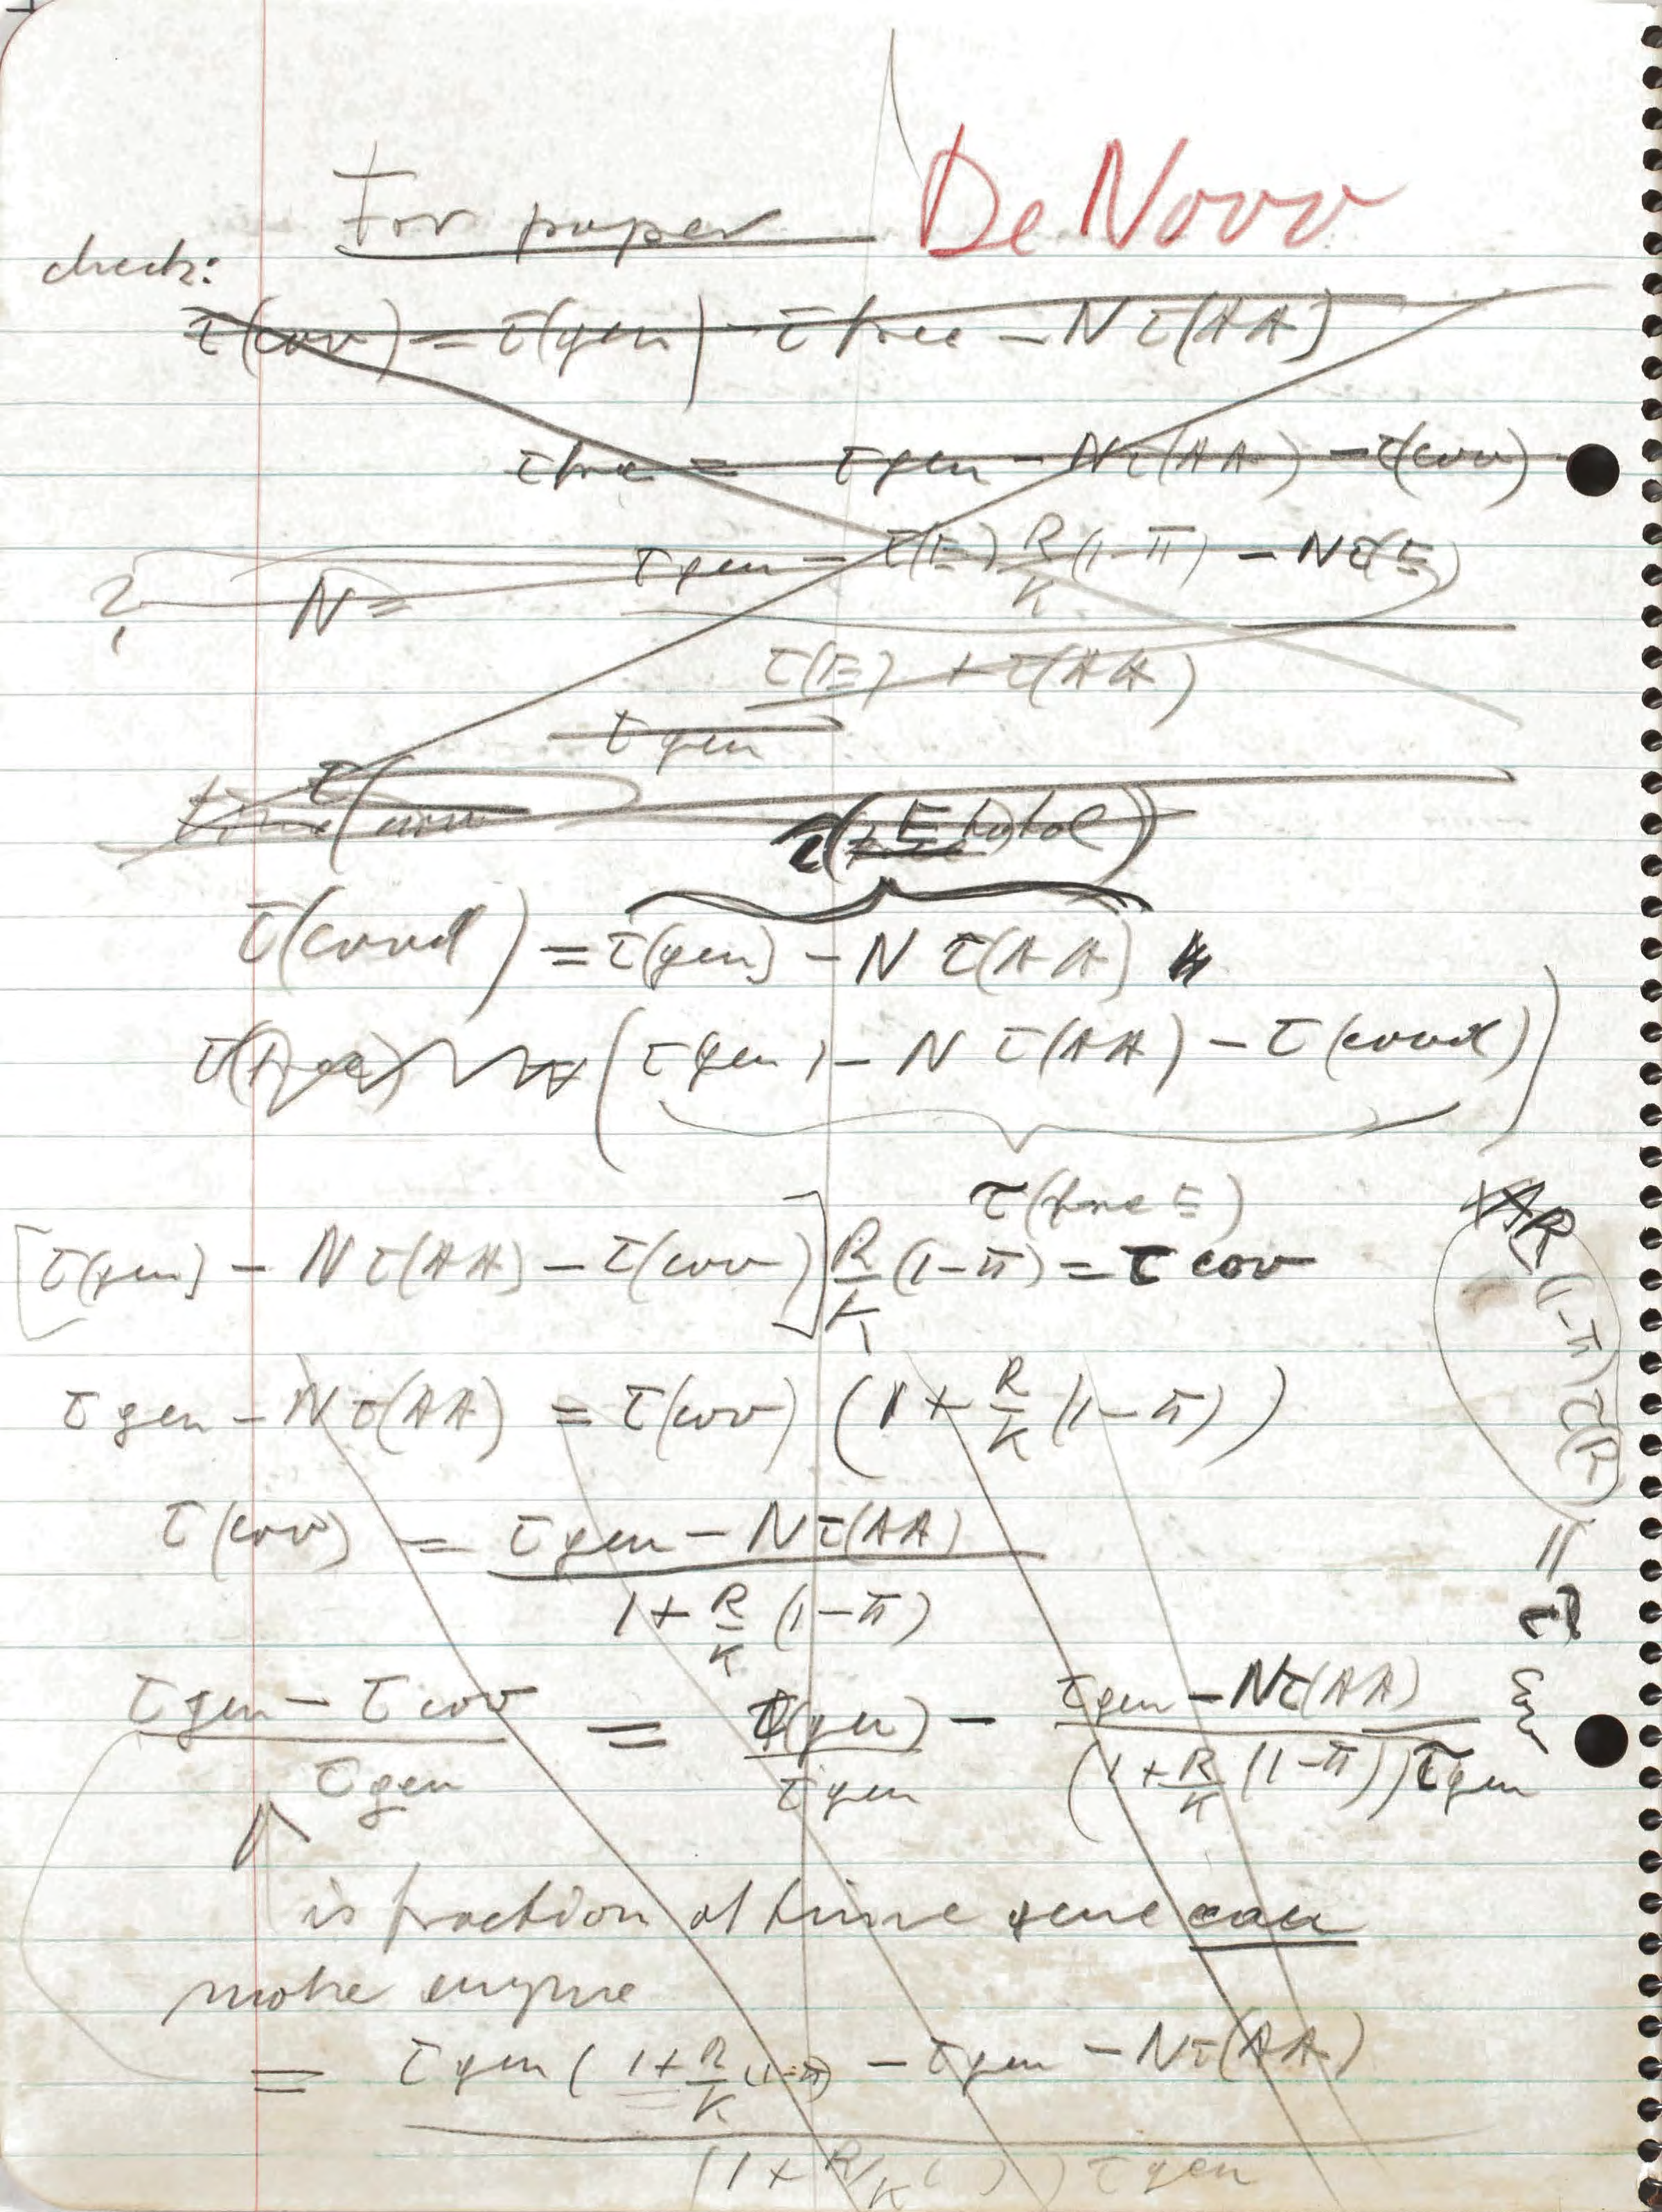 For paper De Novo
check:
τ(cov) = τ(gen) - τfree - Nτ(AA)
τfree = τgen - Nτ(AA) - τ(cov)
? N = τgen - τ(E) R/K (1-π) - Nτ(E)
τ(E) + τ(AA)
τgen
τ(E total)
τ(covd) = τ(gen) - N τ(AA)
τ(free) (τ(gen) - N τ(AA) - τ(covd))
τ(free E)
[τ(gen) - N τ(AA) - τ(cov)] R/K (1-π) = τ cov
τgen - Nτ(AA) = τ(cov) (1 + R/K (1-π))
τ(cov) = τgen - Nτ(AA)
1 + R/K (1-π)
τgen - τcov / τgen = τ(gen) / τgen - τgen - Nτ(AA) / (1 + R/K (1-π)) τgen
is fraction of time gene can
make enzyme
= τgen (1 + R/K (1-π) - τgen - Nτ(AA)
(1 + R/K ( )) τgen
R (1-π) τ(R) =